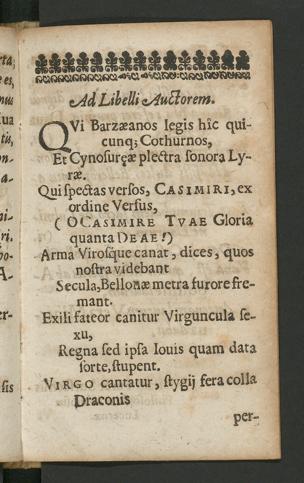 Ad Libelli Auctorem.
QVi Barzæanos legis hîc qui-
cunq; Cothurnos,
Et Cynosuręæ plectra sonora Ly-
ræ.
Qui spectas versos, CASIMIRI, ex
ordine Versus,
( O CASIMIRE TVAE Gloria
quanta DEAE!)
Arma Virosque canat, dices, quos
nostra videbant
Secula, Bellonæ metra furore fre-
mant.
Exili fateor canitur Virguncula se-
xu,
Regna sed ipsa Iouis quam data
sorte, stupent.
VIRGO cantatur, stygij fera colla
Draconis
per-